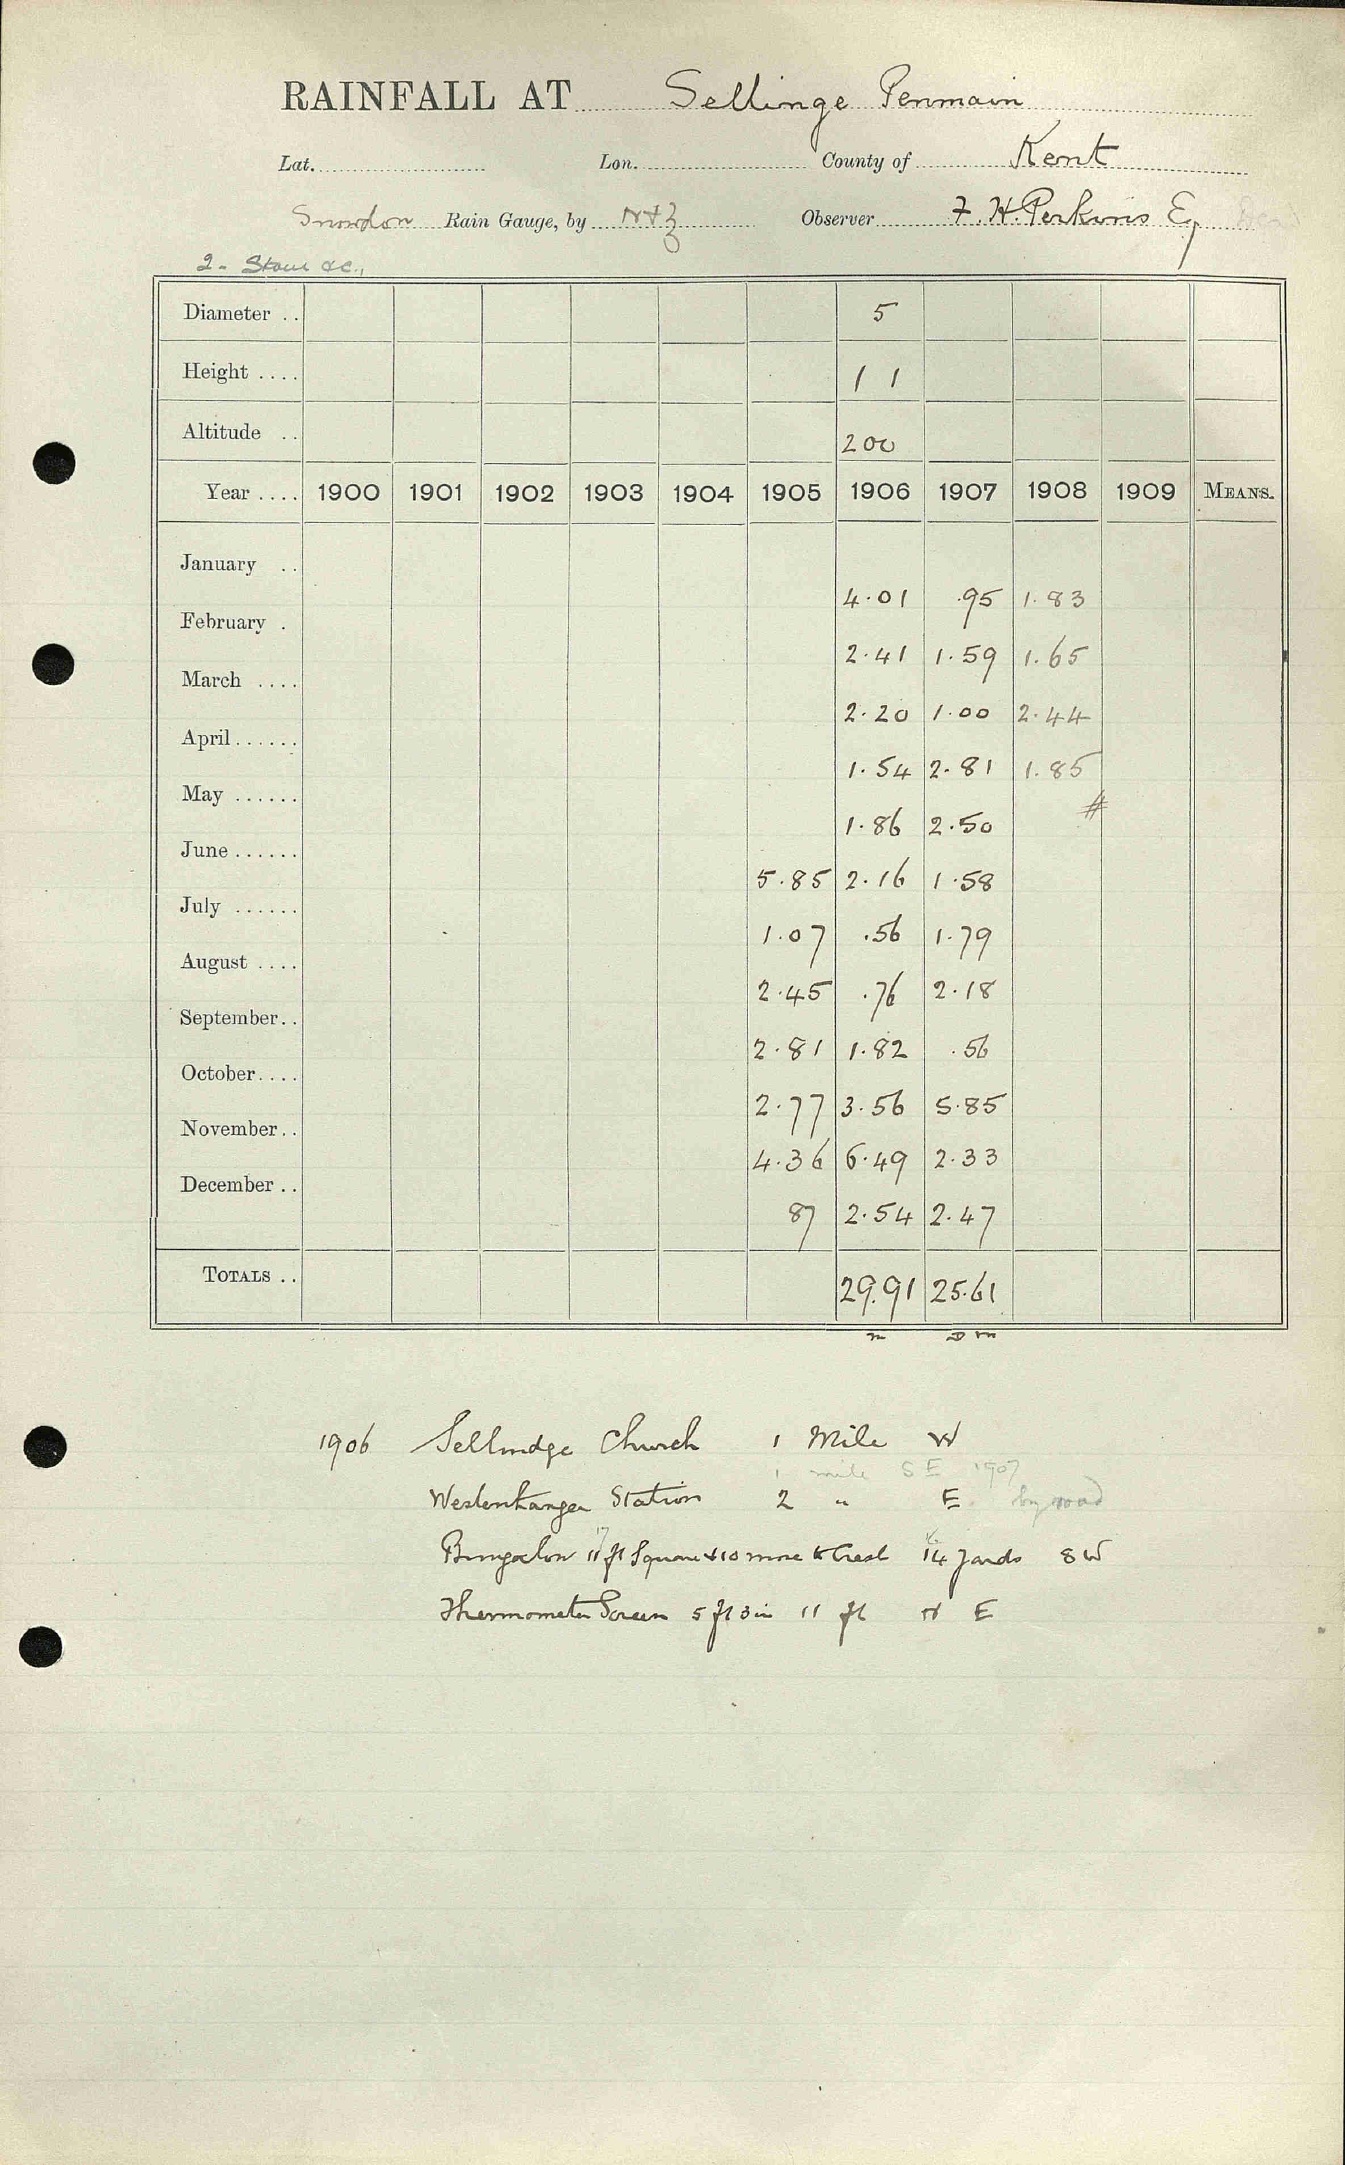 RAINFALL AT Sellinge Penmain
Lat. Lon. County of Kent
Snowdon Rain Gauge, by N+Z Observer F. H. Perkins Esq
2 - Stour &c.,
Diameter .. 5
Height .... 1 1
Altitude .. 200
Year .... 1900 1901 1902 1903 1904 1905 1906 1907 1908 1909 MEANS.
January .. 4.01 .95 1.83
February . 2.41 1.59 1.65
March .... 2.20 1.00 2.44
April...... 1.54 2.81 1.85
May ...... 1.86 2.50 #
June ...... 5.85 2.16 1.58
July ...... 1.07 .56 1.79
August .... 2.45 .76 2.18
September.. 2.81 1.82 .56
October.... 2.77 3.56 5.85
November.. 4.36 6.49 2.33
December .. 87 2.54 2.47
TOTALS .. 29.91 25.61
m D m
1906 Sellindge Church 1 Mile W
1 mile SE 1907
Westenhanger Station 2 " E by road
Bungalow 11 ft Square + 10 more to Crest 14 yards SW
Thermometer Screen 5 ft 3 in 11 ft N E